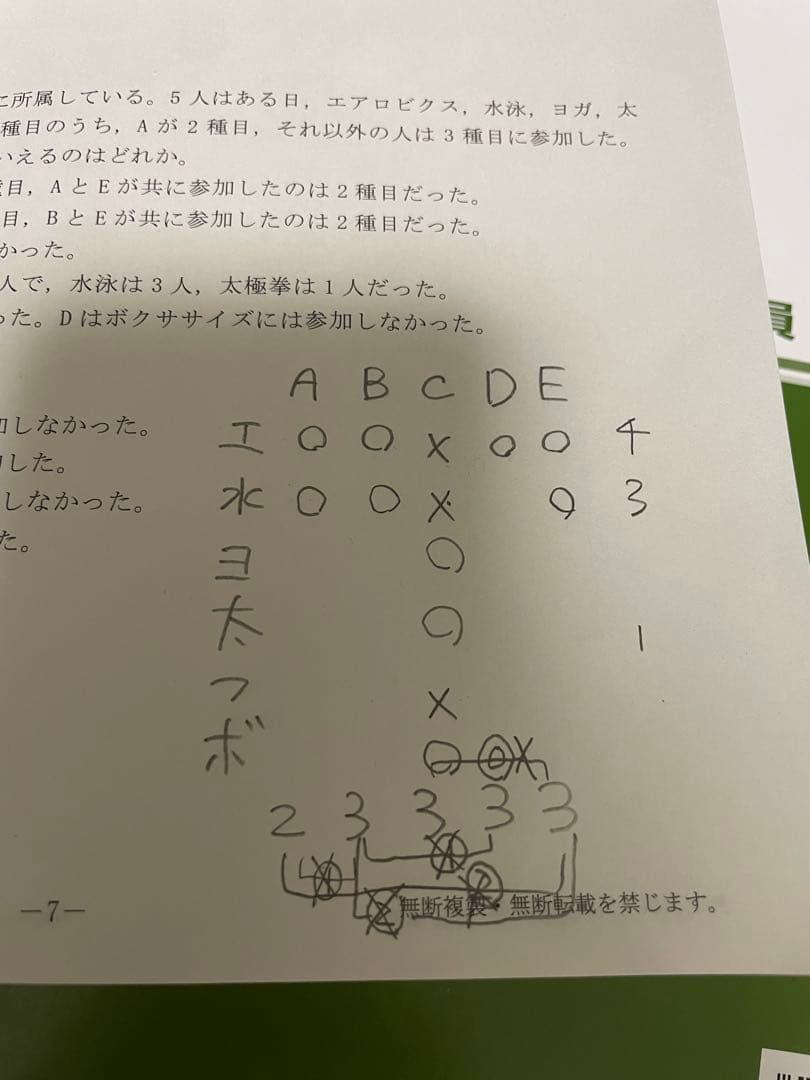 に所属している。5人はある日，エアロビクス，水泳，ヨガ，太
種目のうち，Aが2種目，それ以外の人は3種目に参加した。
いえるのはどれか。
目，AとEが共に参加したのは2種目だった。
目，BとEが共に参加したのは2種目だった。
かった。
人で，水泳は3人，太極拳は1人だった。
った。Dはボクササイズには参加しなかった。
員
A B C D E
加しなかった。
エ ○ ○ × ○ ○ 4
した。
しなかった。
水 ○ ○ × ○ 3
た。
ヨ ○
太 ○ 1
フ ×
ボ ○ ×
2 3 3 3 3
－7－
無断複製・無断転載を禁じます。